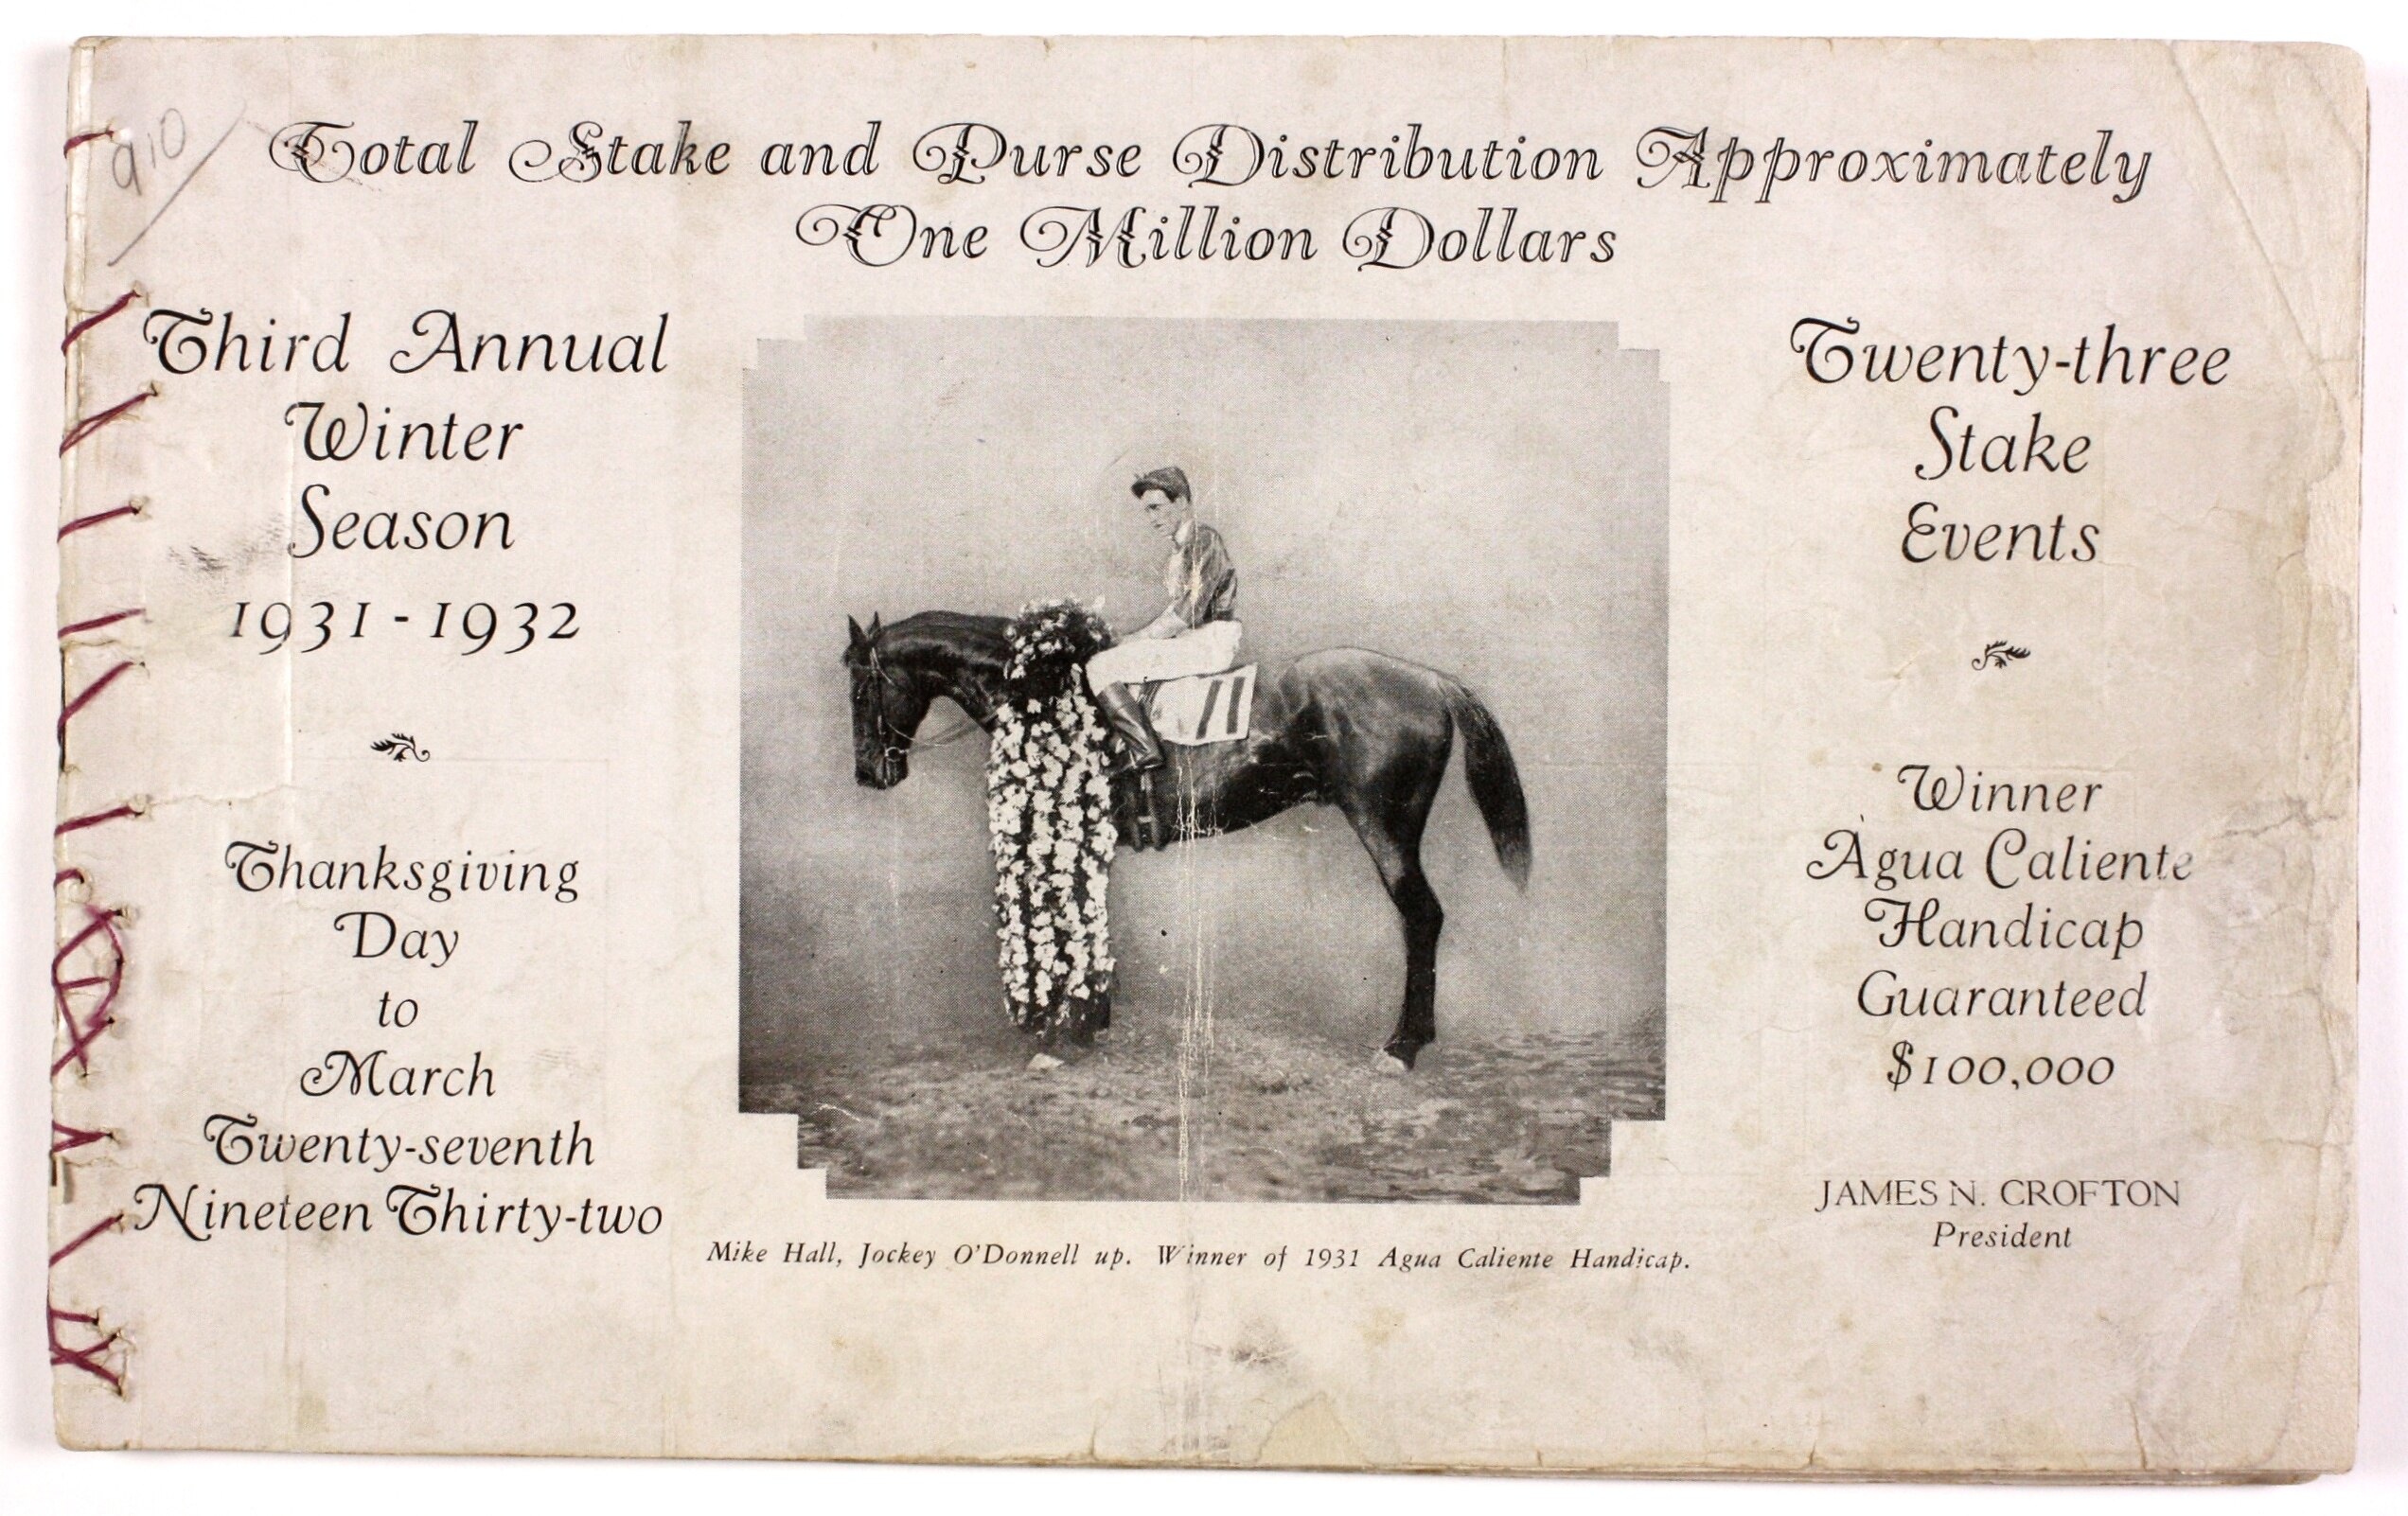 910
Total Stake and Purse Distribution Approximately
One Million Dollars
Third Annual
Winter
Season
1931 - 1932
Thanksgiving
Day
to
March
Twenty-seventh
Nineteen Thirty-two
11
Mike Hall, Jockey O'Donnell up. Winner of 1931 Agua Caliente Handicap.
Twenty-three
Stake
Events
Winner
Agua Caliente
Handicap
Guaranteed
$100,000
JAMES N. CROFTON
President